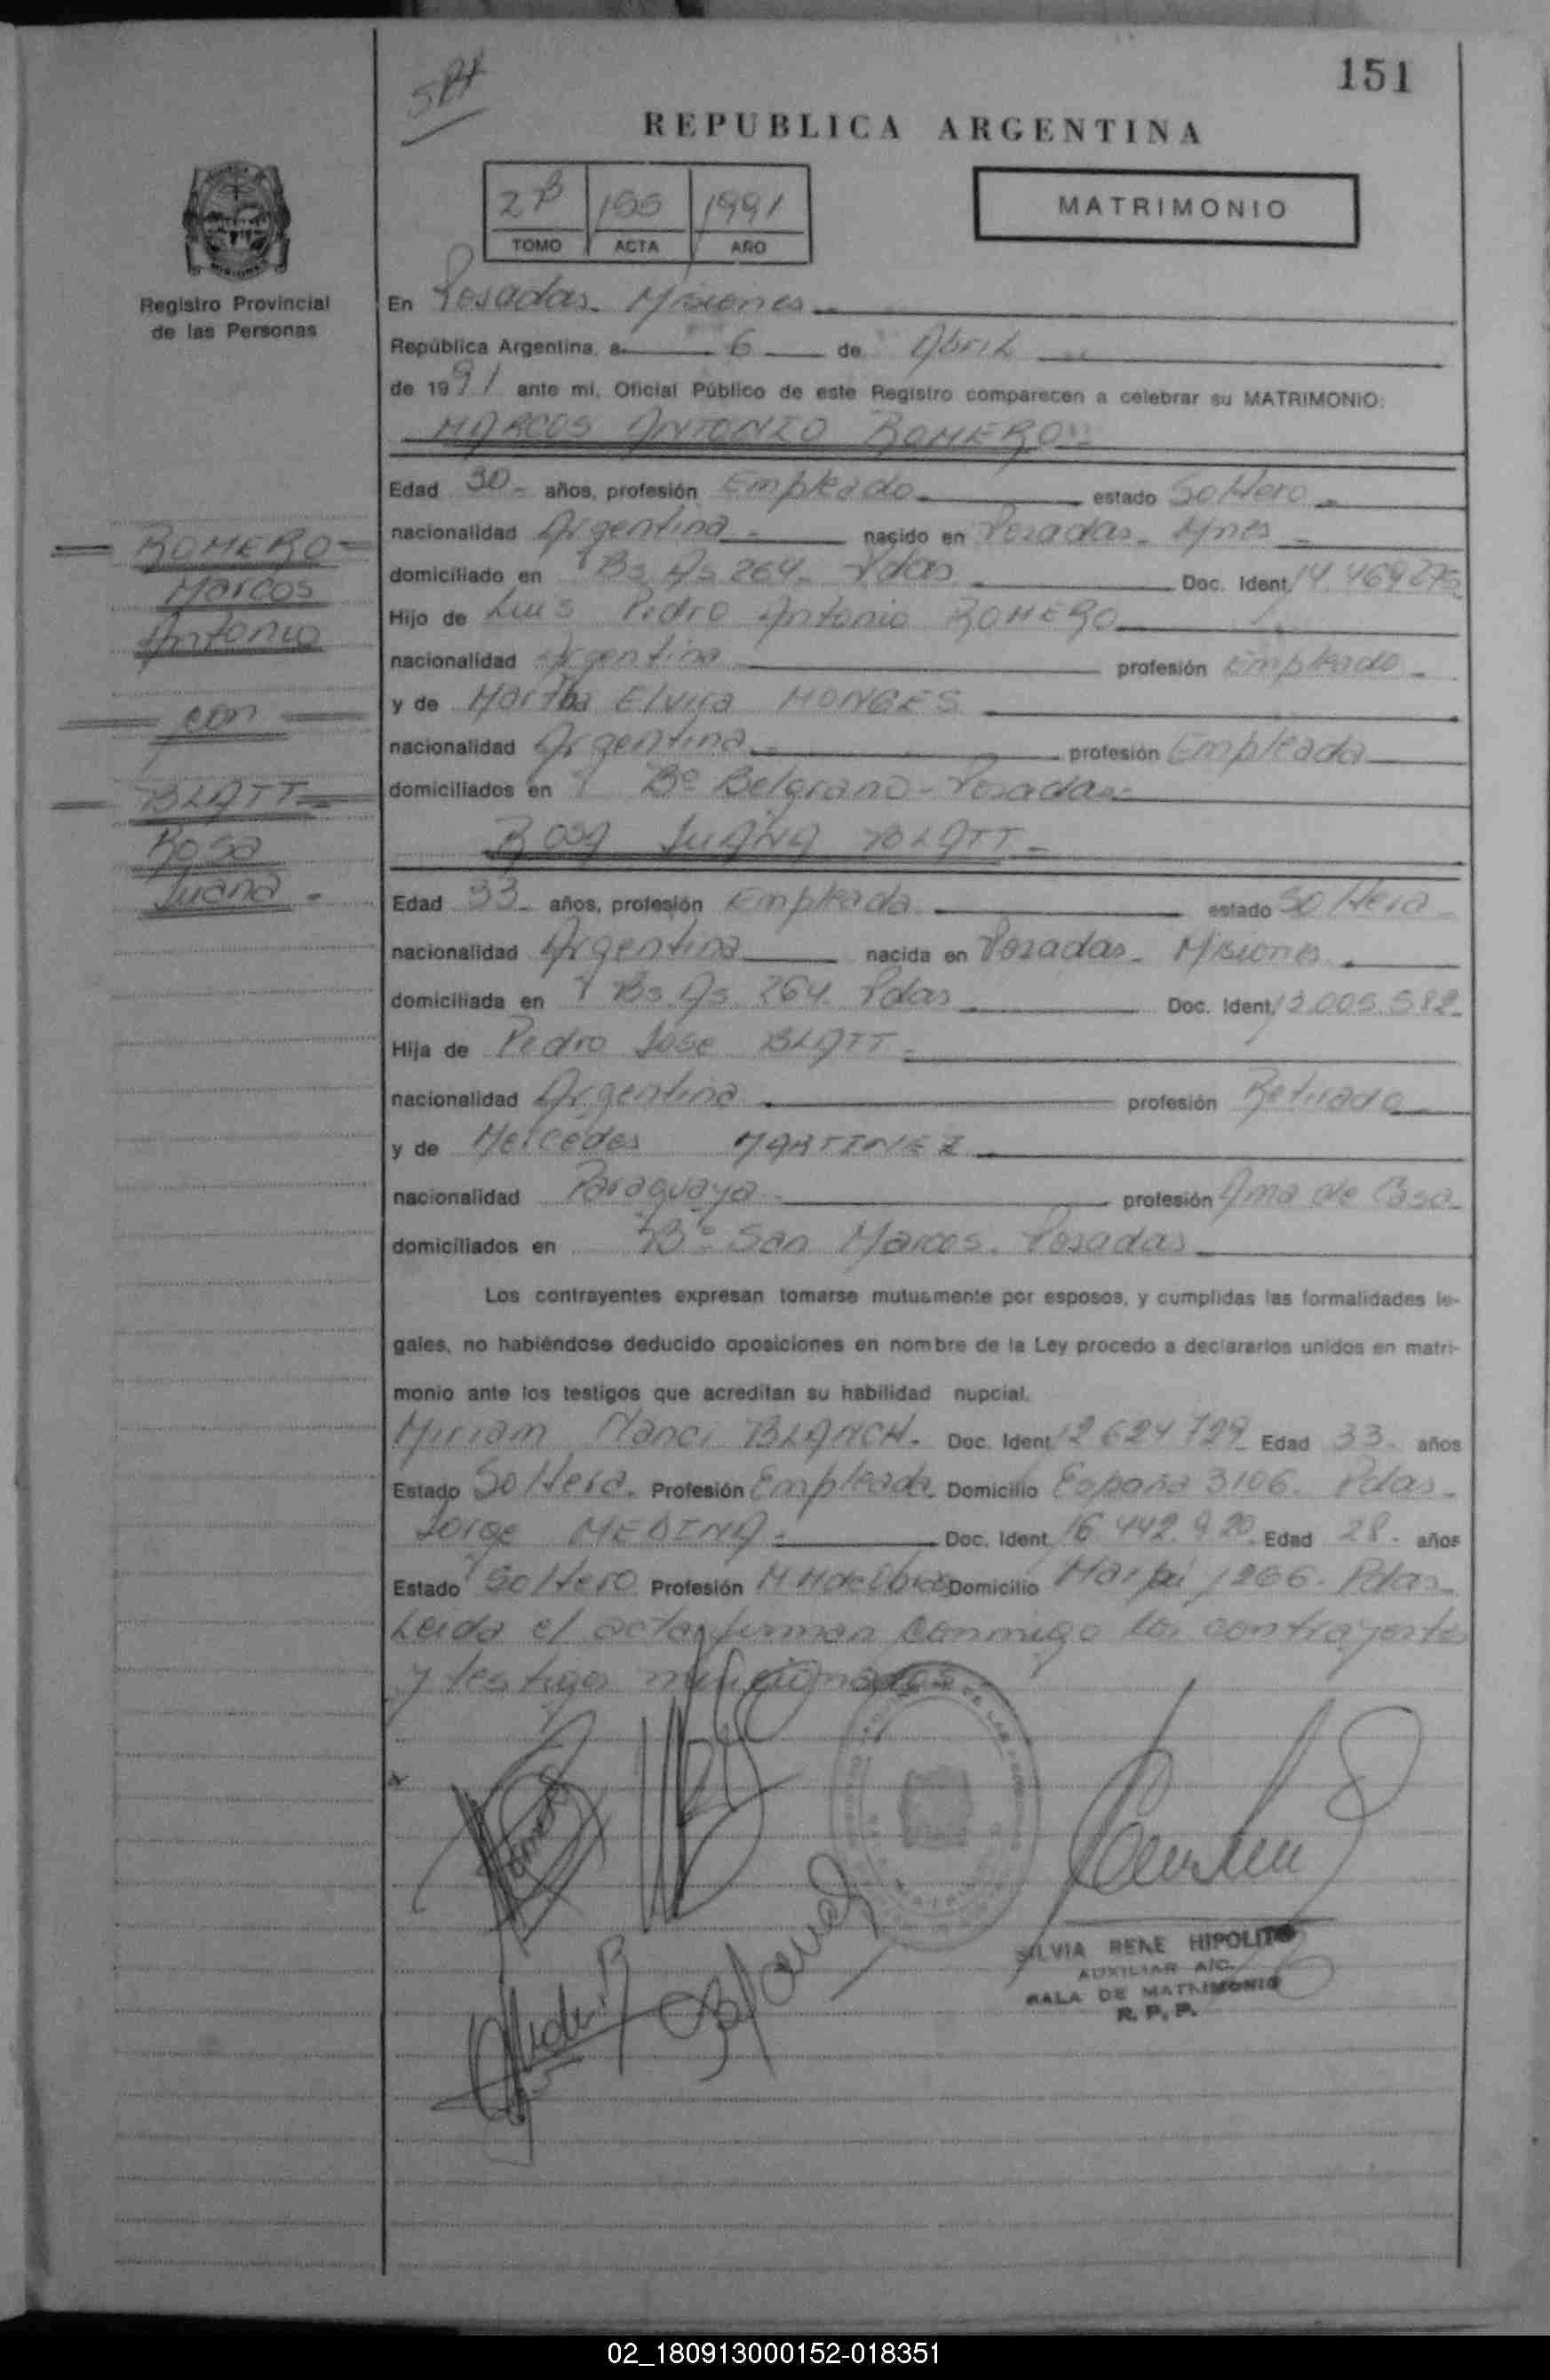 151
REPUBLICA ARGENTINA
2º 1991
TOMO ACTA AÑO
MATRIMONIO
Registro Provincial
de las Personas
En Posadas. Misiones
República Argentina, a 6 de Abril
de 1991 ante mi, Oficial Público de este Registro comparecen a celebrar su MATRIMONIO:
MARCOS ANTONIO ROMERO
Edad 30 años, profesión Empleado estado Soltero
nacionalidad Argentina nacido en Posadas. Mnes
domiciliado en Bs As 264. Pdas Doc. Ident. 14.469.275
Hijo de Luis Pedro Antonio ROMERO
nacionalidad Argentina profesión Empleado
y de Martha Elvira MONGES
nacionalidad Argentina profesión Empleada
domiciliados en Bº Belgrano - Posadas
ROSA JUANA BLATT
Edad 33 años, profesión Empleada estado Soltera
nacionalidad Argentina nacida en Posadas. Misiones
domiciliada en Bs. As 264. Pdas Doc. Ident. 13.005.582
Hija de Pedro Jose BLATT
nacionalidad Argentina profesión Retirado
y de Mercedes MARTINEZ
nacionalidad Paraguaya profesión Ama de Casa
domiciliados en Bº San Marcos. Posadas
Los contrayentes expresan tomarse mutuamente por esposos, y cumplidas las formalidades le-
gales, no habiéndose deducido oposiciones en nombre de la Ley procedo a declararlos unidos en matri-
monio ante los testigos que acreditan su habilidad nupcial.
Miriam Nanci BLANCH. Doc. Ident. 12.624.729 Edad 33 años
Estado Soltera. Profesión Empleada Domicilio España 3106. Pdas
Jorge MEDINA Doc. Ident. 16.442.920 Edad 28 años
Estado Soltero Profesión Domicilio Maipú 1266. Pdas
Leida el acta firman conmigo los contrayentes
y testigos mencionados
ROMERO
Marcos
Antonio
con
BLATT
Rosa
Juana
SILVIA RENE HIPOLITO
AUXILIAR A/C.
SALA DE MATRIMONIO
R. P. P.
02_180913000152-018351